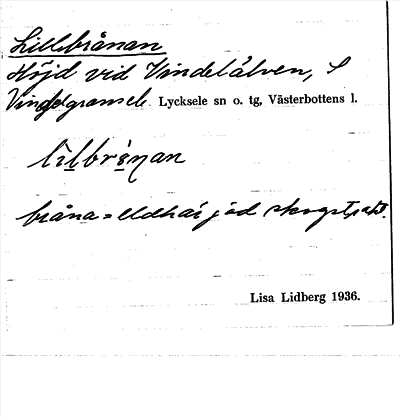 Lillbrånan
Höjd vid Vindelälven, S
Vindelgransele. Lycksele sn o. tg, Västerbottens l.
bråna = eldhärjad skogstrakt.
Lisa Lidberg 1936.